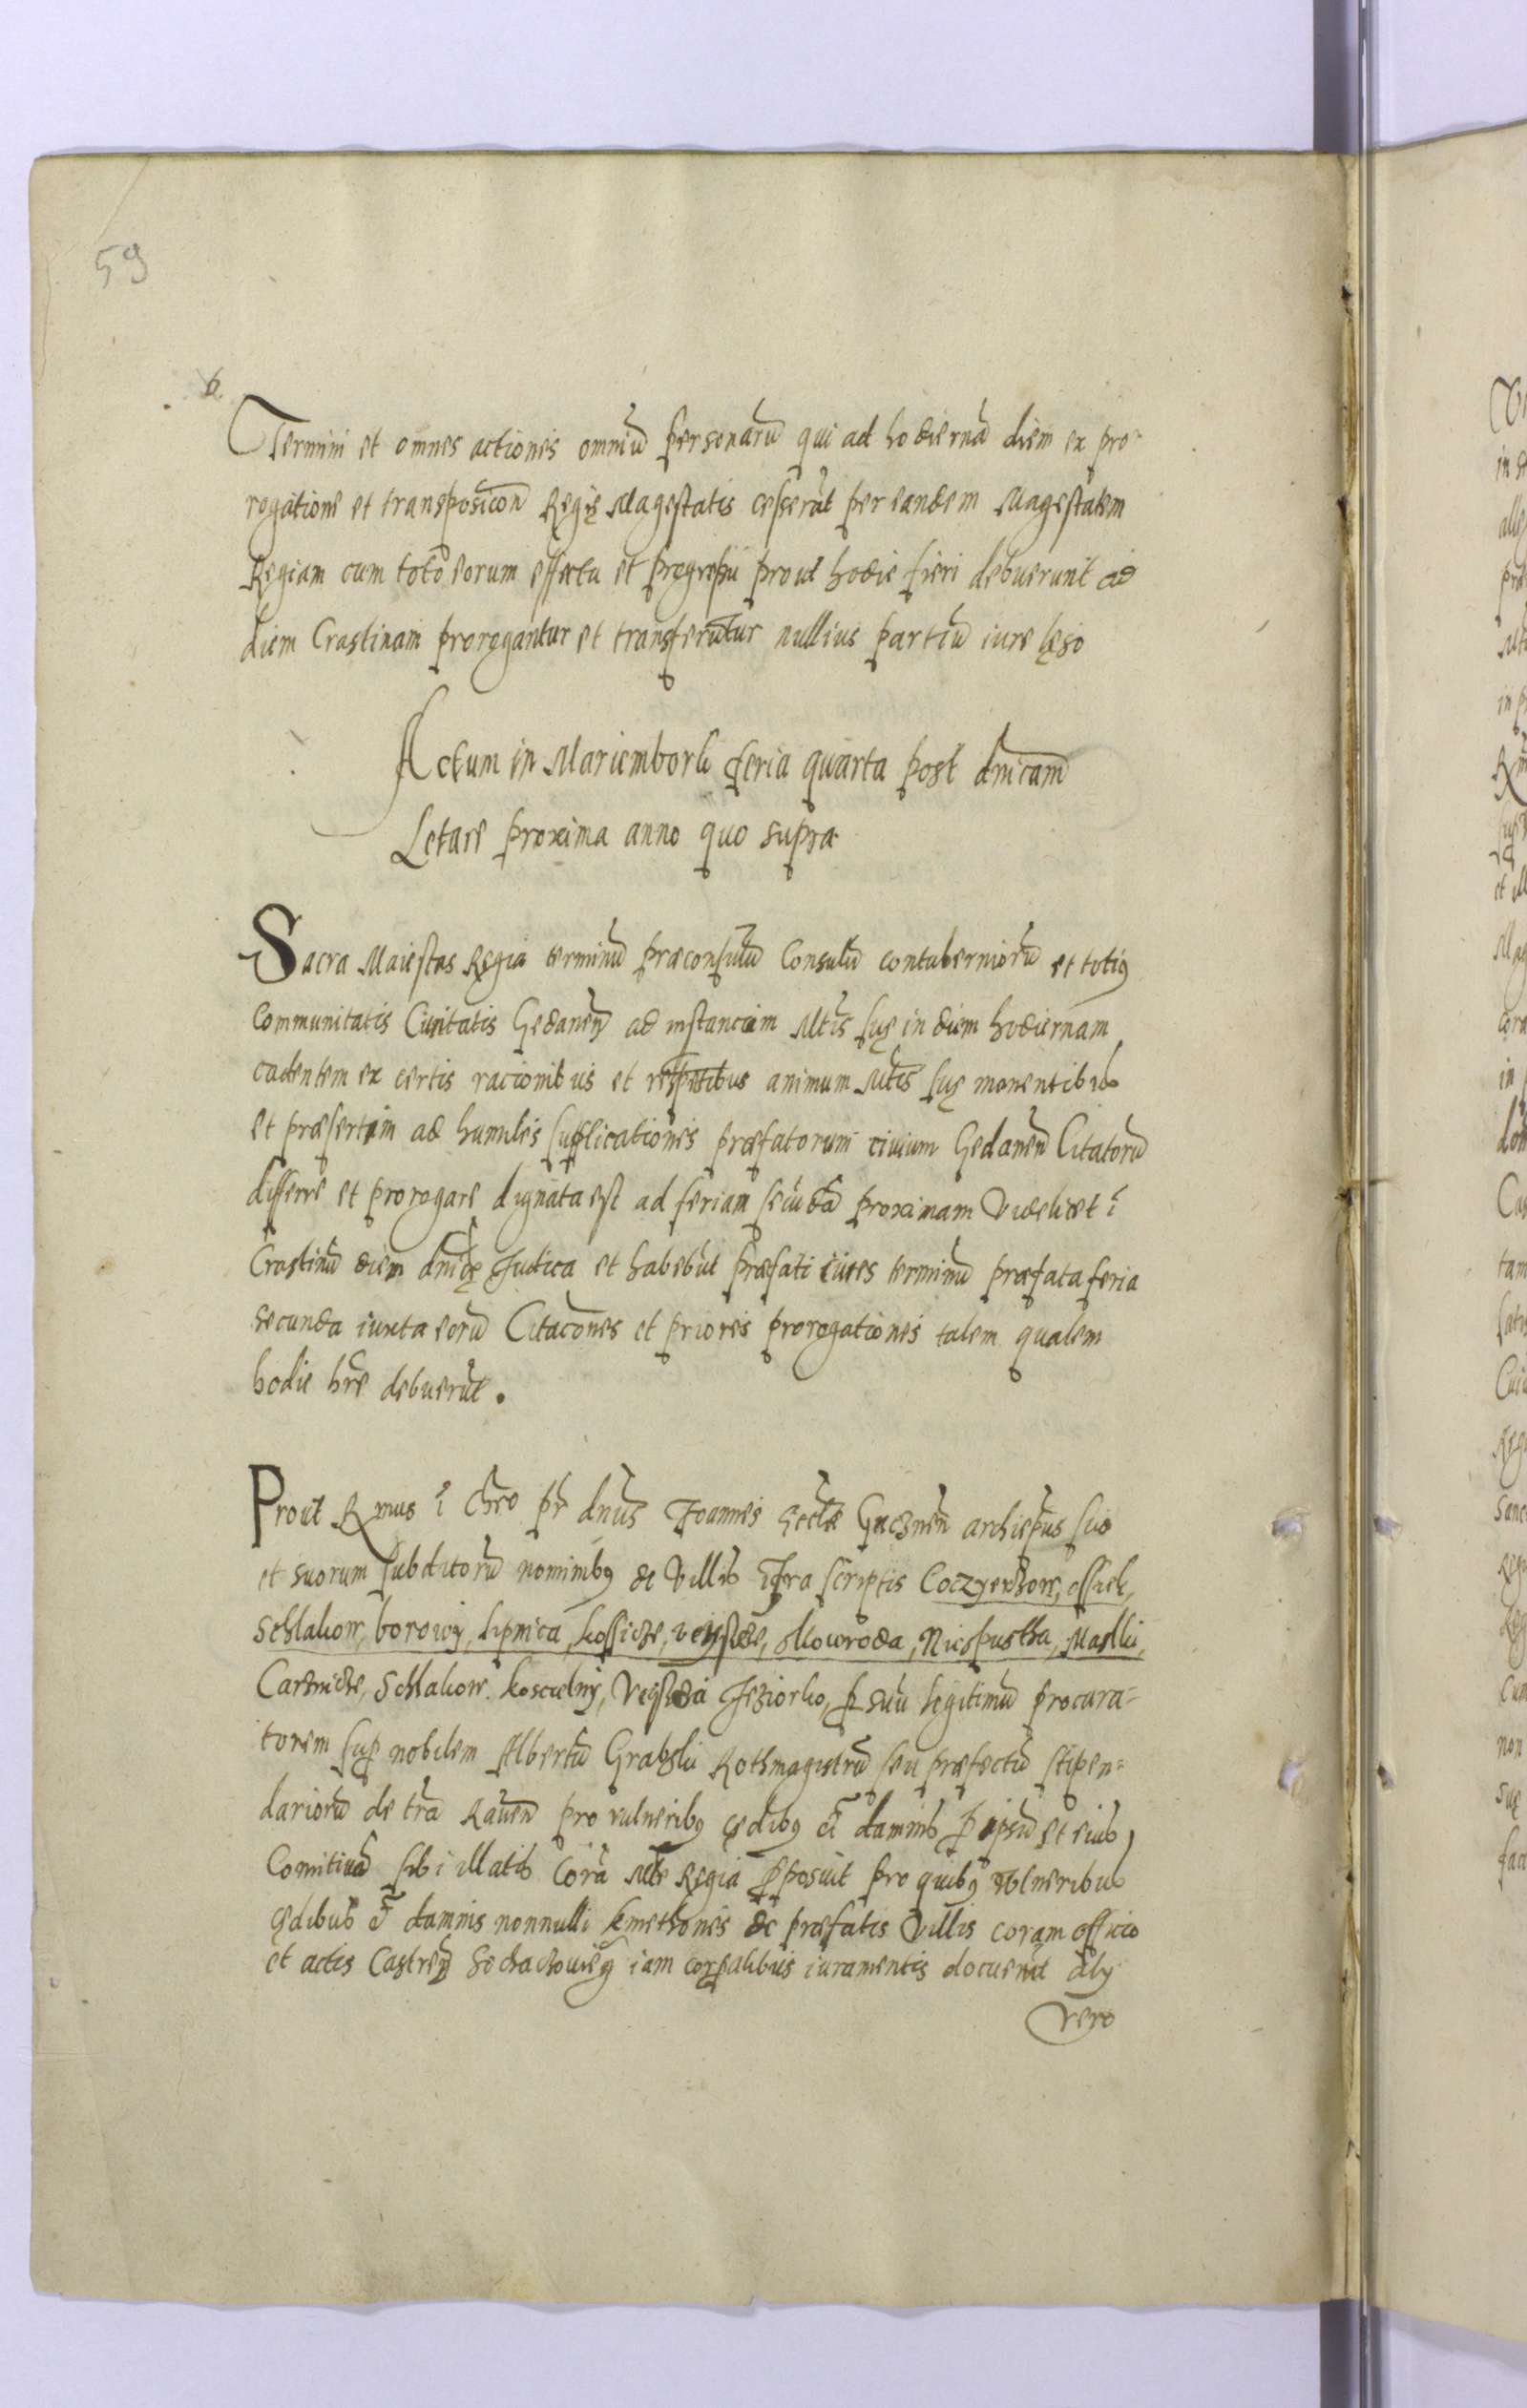 59
Termini et omnes actiones omniũ personarũ qui ad hodiernã diem ex pro-
rogatione et transposicon̄ Regię Magestatis cesserũt per eandem Magestatem
Regiam cum toto eorum effectu et progressu prout hodie fieri debuerunt ad
diem Crastinam prorogantur et transferũtur nullius partiũ iure lęso
Actum in Mariembork feria quarta post dnicam̄
Letare proxima anno quo supra
Sacra Maiestas Regia terminũ præconsulũ Consulũ contuberniorũ et totiꝯ
Communitatis Ciuitatis Gedaneñ ad instanciam Mtis suę in diem hodiernam
cadentem ex certis racionibus et respectibus animum Mtis suę mouentibus
et præsertim ad humiles supplicationes præfatorum ciuium Gedaneñ Citatorũ
differre et prorogare dignata est ad feriam secũdã proximam Videlicet ĩ
Crastinũ diem dnicę Judica et habebũt præfati ciues terminũ præfata feria
secunda iuxta eorũ Citacões et priores prorogationes talem qualem
hodie hr̃e debuerũt.
Prout Rmus ĩ Chro pr̃ dnũs Joannes Eccl̃æ Gneznen̄ archiep̃us suo
et suorum subditorũ nominibꝯ de Villis ĩfra scriptis Coczyerzow, ossiek,
Schlakow, borowy, lipnica, kossicze, veysdze, Mowroda, Niespustha, Maslki,
Carznicze, Schlakow koscielny, Veyscza Jeziorko, ꝑ suũ legitimũ procura-
torem sup̃ nobilem Albertũ Grabski Rothmagistrũ seu præfectũ stipen-
dariorũ de tr̃a Raueñ pro vulneribꝯ cędibꝯ et damnis ꝑ ipsũ et eius
Comitiuã sibi illatis Corã Mte Regia ꝓposuit pro quibꝯ vulneribus
cędibus et damnis nonnulli kmethones de præfatis Villis coram officio
et actis Castreñ Sochaczouieñ iam corꝑalibus iuramentis docuerũt aly
vero